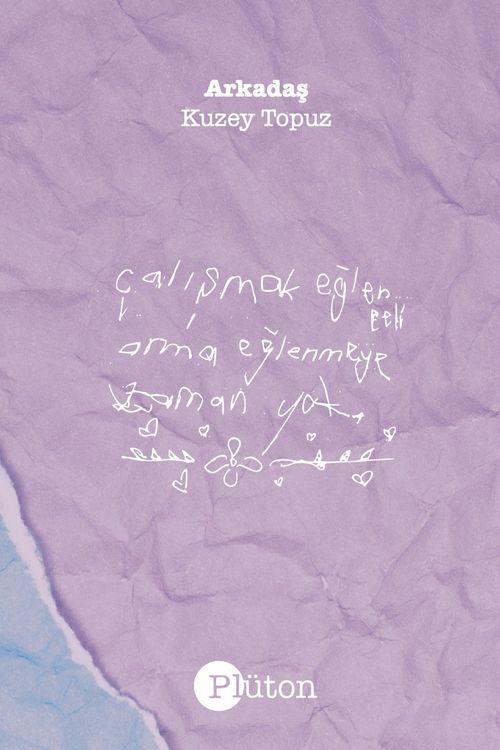 Arkadaş
Kuzey Topuz
çalışmak eğlen...
celi
ama eğlenmeye
zaman yok.
Plüton